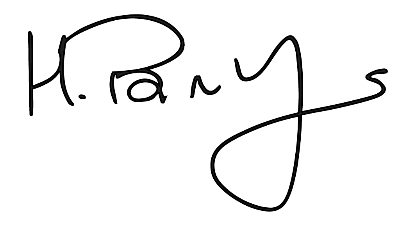 H. Parys